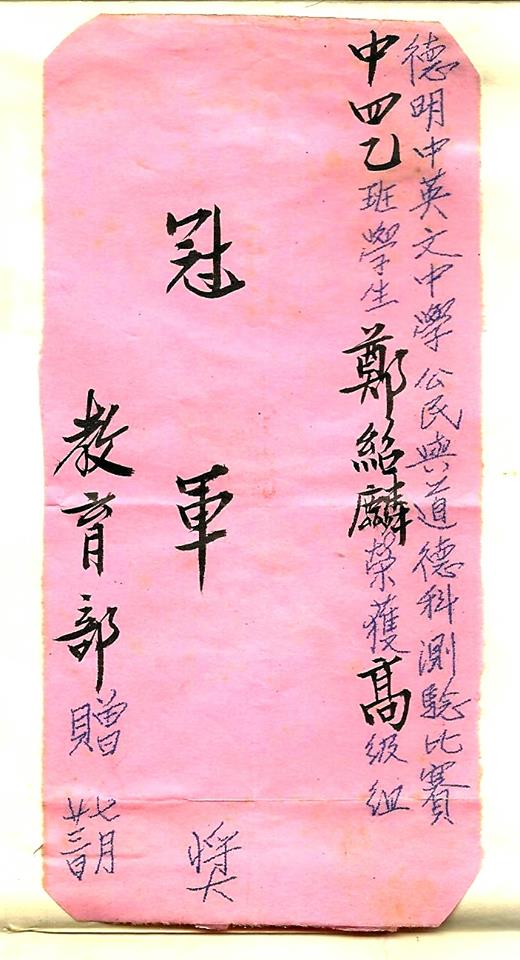 德明中英文中學公民與道德科測騐比賽
中四乙班學生鄭紹麟榮獲高級組
冠軍奬
教育部贈
七月
廿三日